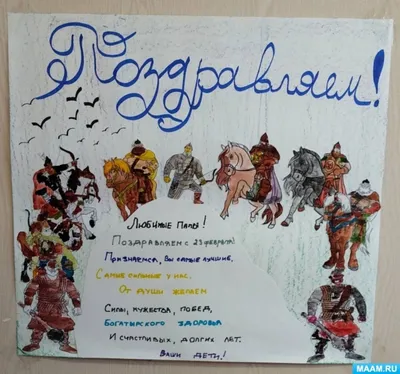 Поздравляем!
Любимые Папы!
Поздравляем с 23 февраля!
Признаемся, Вы самые лучшие,
Самые сильные у нас.
От души желаем
Силы, мужества, побед,
Богатырского здоровья
И счастливых, долгих лет.
Ваши дети!
MAAM.RU
MAAM.RU